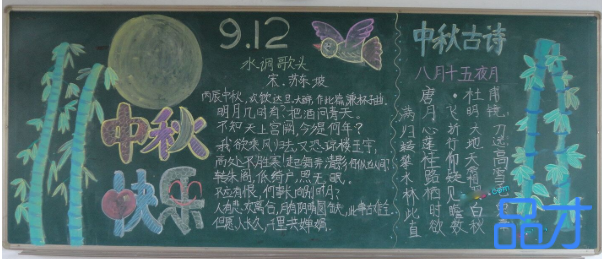 中秋
快乐
9.12
水调歌头
宋.苏东坡
丙辰中秋，欢饮达旦，大醉，作此篇，兼怀子由。
明月几时有？把酒问青天。
不知天上宫阙，今夕是何年？
我欲乘风归去，又恐琼楼玉宇，
高处不胜寒，起舞弄清影，何似在人间
转朱阁，低绮户，照无眠。
不应有恨，何事长向别时圆？
人有悲欢离合，月有阴晴圆缺，此事古难全。
但愿人长久，千里共婵娟。
中秋古诗
八月十五夜月
唐·杜甫
满月飞明镜，
归心折大刀
转蓬行地远
攀桂仰天高
水路疑霜雪
林栖见羽毛
此时瞻白兔
直欲数秋
品才